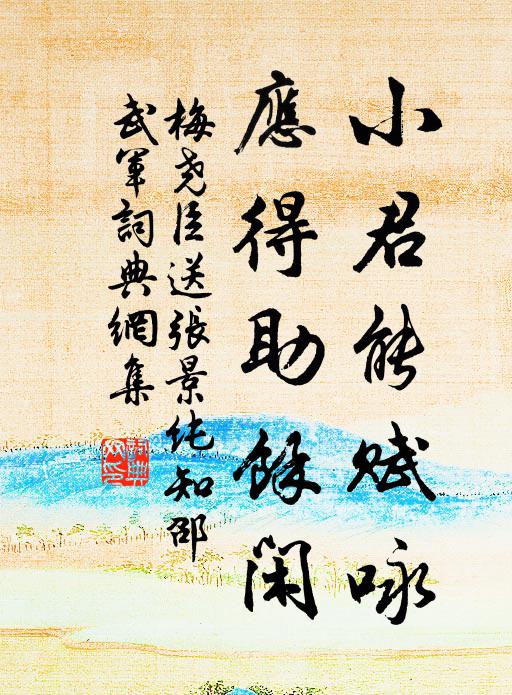 小君能賦咏
應得助餘閑
梅堯臣送張景純知邵
武軍詞典網集